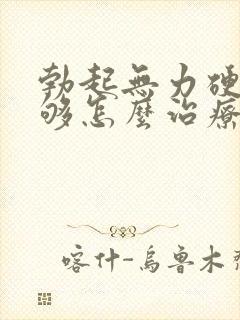 勃起無力硬
够怎麼治療
喀什-烏魯木齊